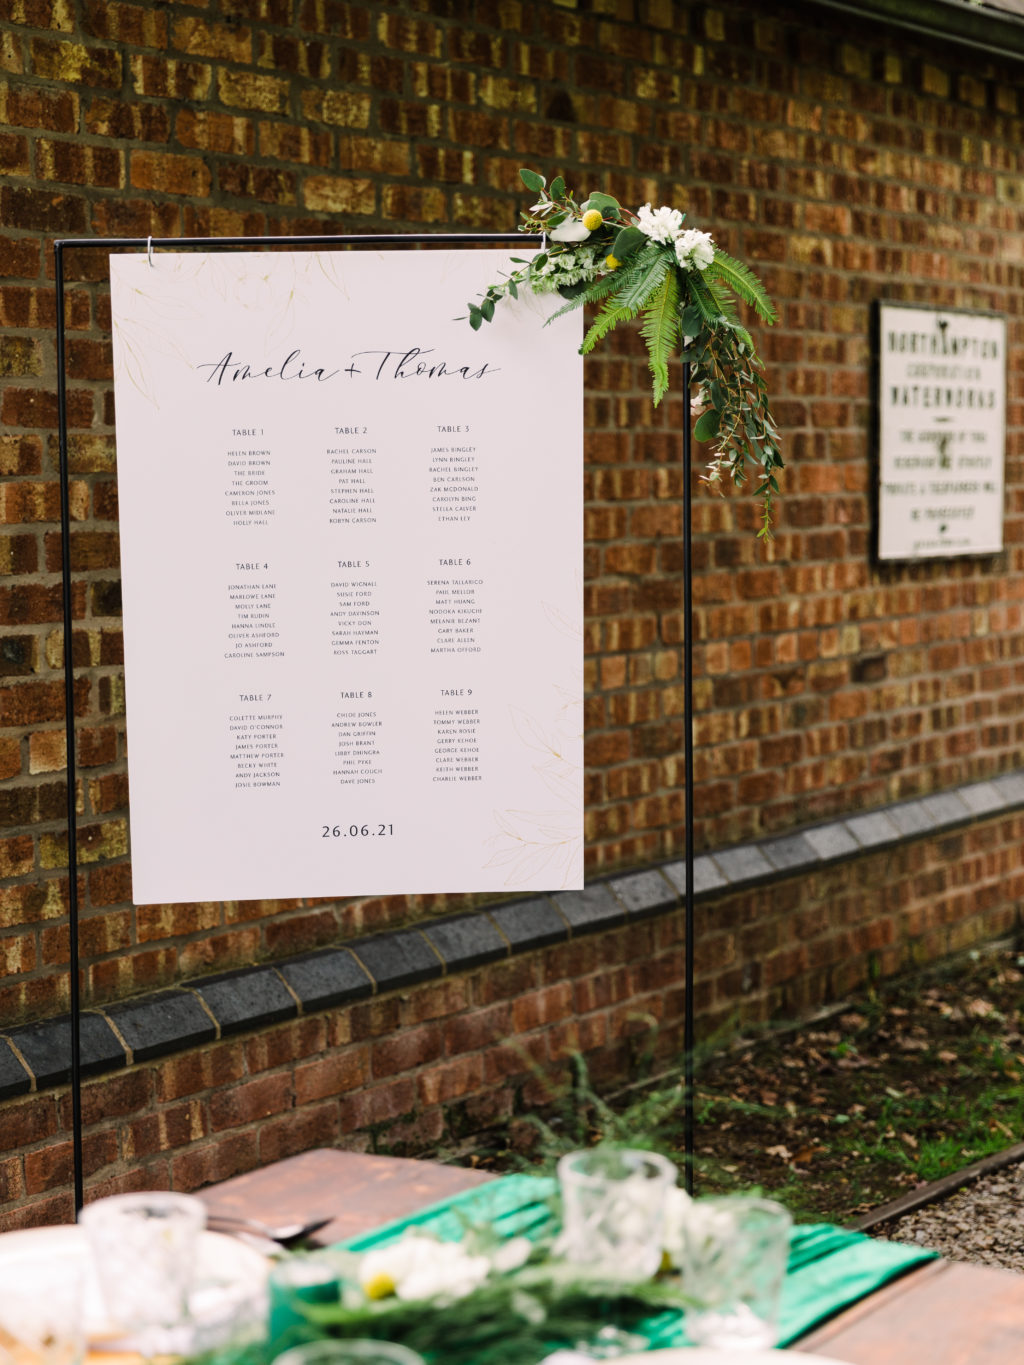 Amelia + Thomas
TABLE 1
HELEN BROWN
DAVID BROWN
THE BRIDE
THE GROOM
CAMERON JONES
BELLA JONES
OLIVER MIDLANE
HOLLY HALL
TABLE 2
RACHEL CARSON
PAULINE HALL
GRAHAM HALL
PAT HALL
STEPHEN HALL
CAROLINE HALL
NATALIE HALL
ROBYN CARSON
TABLE 3
JAMES BINGLEY
LYNN BINGLEY
RACHEL BINGLEY
BEN CARLSON
ZAK MCDONALD
CAROLYN BING
STELLA CALVER
ETHAN LEY
TABLE 4
JONATHAN LANE
MARLOWE LANE
MOLLY LANE
TIM RUDIN
HANNA LINDLE
OLIVER ASHFORD
JO ASHFORD
CAROLINE SAMPSON
TABLE 5
DAVID WIGNALL
SUSIE FORD
SAM FORD
ANDY DAVINSON
VICKY DON
SARAH HAYMAN
GEMMA FENTON
ROSS TAGGART
TABLE 6
SERENA TALLARICO
PAUL MELLOR
MATT HUANG
NODOKA KIKUCHI
MELANIE BEZANT
GARY BAKER
CLARE ALEEN
MARTHA OFFORD
TABLE 7
COLETTE MURPHY
DAVID O'CONNOR
KATY PORTER
JAMES PORTER
MATTHEW PORTER
BECKY WHITE
ANDY JACKSON
JOSIE BOWMAN
TABLE 8
CHLOE JONES
ANDREW BOWLER
DAN GRIFFIN
JOSH BRANT
LIBBY DHINGRA
PHIL PYKE
HANNAH COUCH
DAVE JONES
TABLE 9
HELEN WEBBER
TOMMY WEBBER
KAREN ROSIE
GERRY KEHOE
GEORGE KEHOE
CLARE WEBBER
KEITH WEBBER
CHARLIE WEBBER
26.06.21
NORTHAMPTON
WATERWORKS